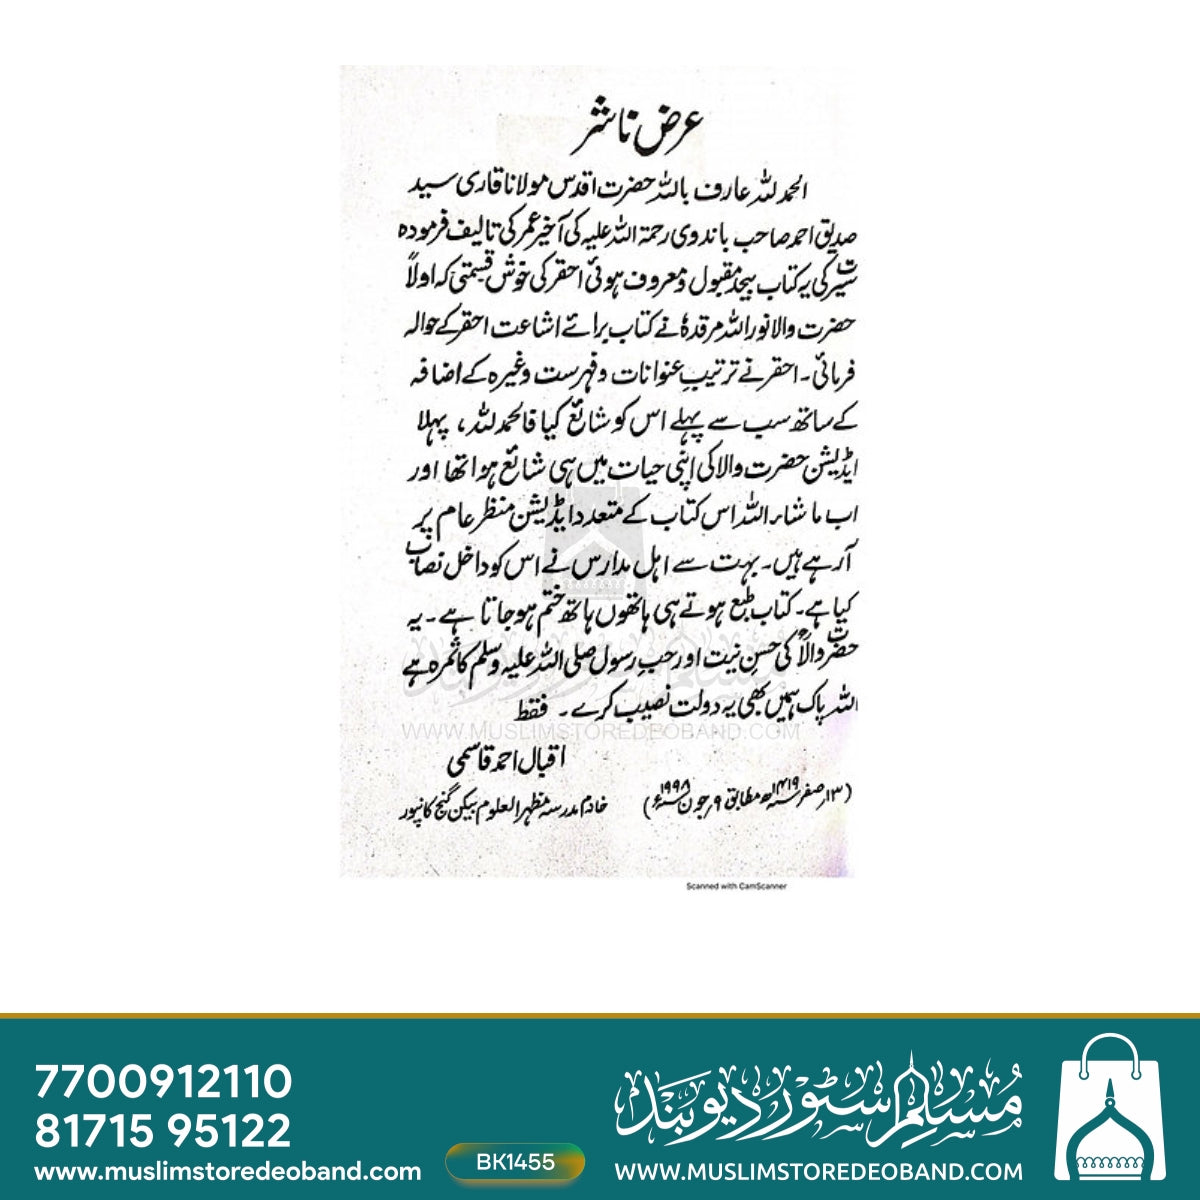 عرض ناشر
الحمد للہ عارف باللہ حضرت اقدس مولانا قاری سید
صدیق احمد صاحب باندوی رحمۃ اللہ علیہ کی آخیر عمر کی تالیف فرمودہ
سیرت کی یہ کتاب بیحد مقبول و معروف ہوئی احقر کی خوش قسمتی کہ اولاً
حضرت والا نور اللہ مرقدہٗ نے کتاب برائے اشاعت احقر کے حوالہ
فرمائی۔ احقر نے ترتیبِ عنوانات و فہرست وغیرہ کے اضافہ
کے ساتھ سب سے پہلے اس کو شائع کیا فالحمد للہ، پہلا
ایڈیشن حضرت والا کی اپنی حیات میں ہی شائع ہوا تھا اور
اب ماشاء اللہ اس کتاب کے متعدد ایڈیشن منظر عام پر
آرہے ہیں۔ بہت سے اہل مدارس نے اس کو داخل نصاب
کیا ہے۔ کتاب طبع ہوتے ہی ہاتھوں ہاتھ ختم ہو جاتا ہے۔ یہ
حضرت والاؒ کی حسنِ نیت اور حبِ رسول صلی اللہ علیہ وسلم کا ثمرہ ہے
اللہ پاک ہمیں بھی یہ دولت نصیب کرے۔ فقط
اقبال احمد قاسمی
(۱۳؍صفر ۱۴۱۹ھ مطابق ۹؍جون ۱۹۹۸ء) خادم مدرسہ مظہر العلوم بیکن گنج کانپور
مسلم سٹور دیوبند
WWW.MUSLIMSTOREDEOBAND.COM
Scanned with CamScanner
7700912110
81715 95122
www.muslimstoredeoband.com
BK1455
مسلم سٹور دیوبند
WWW.MUSLIMSTOREDEOBAND.COM